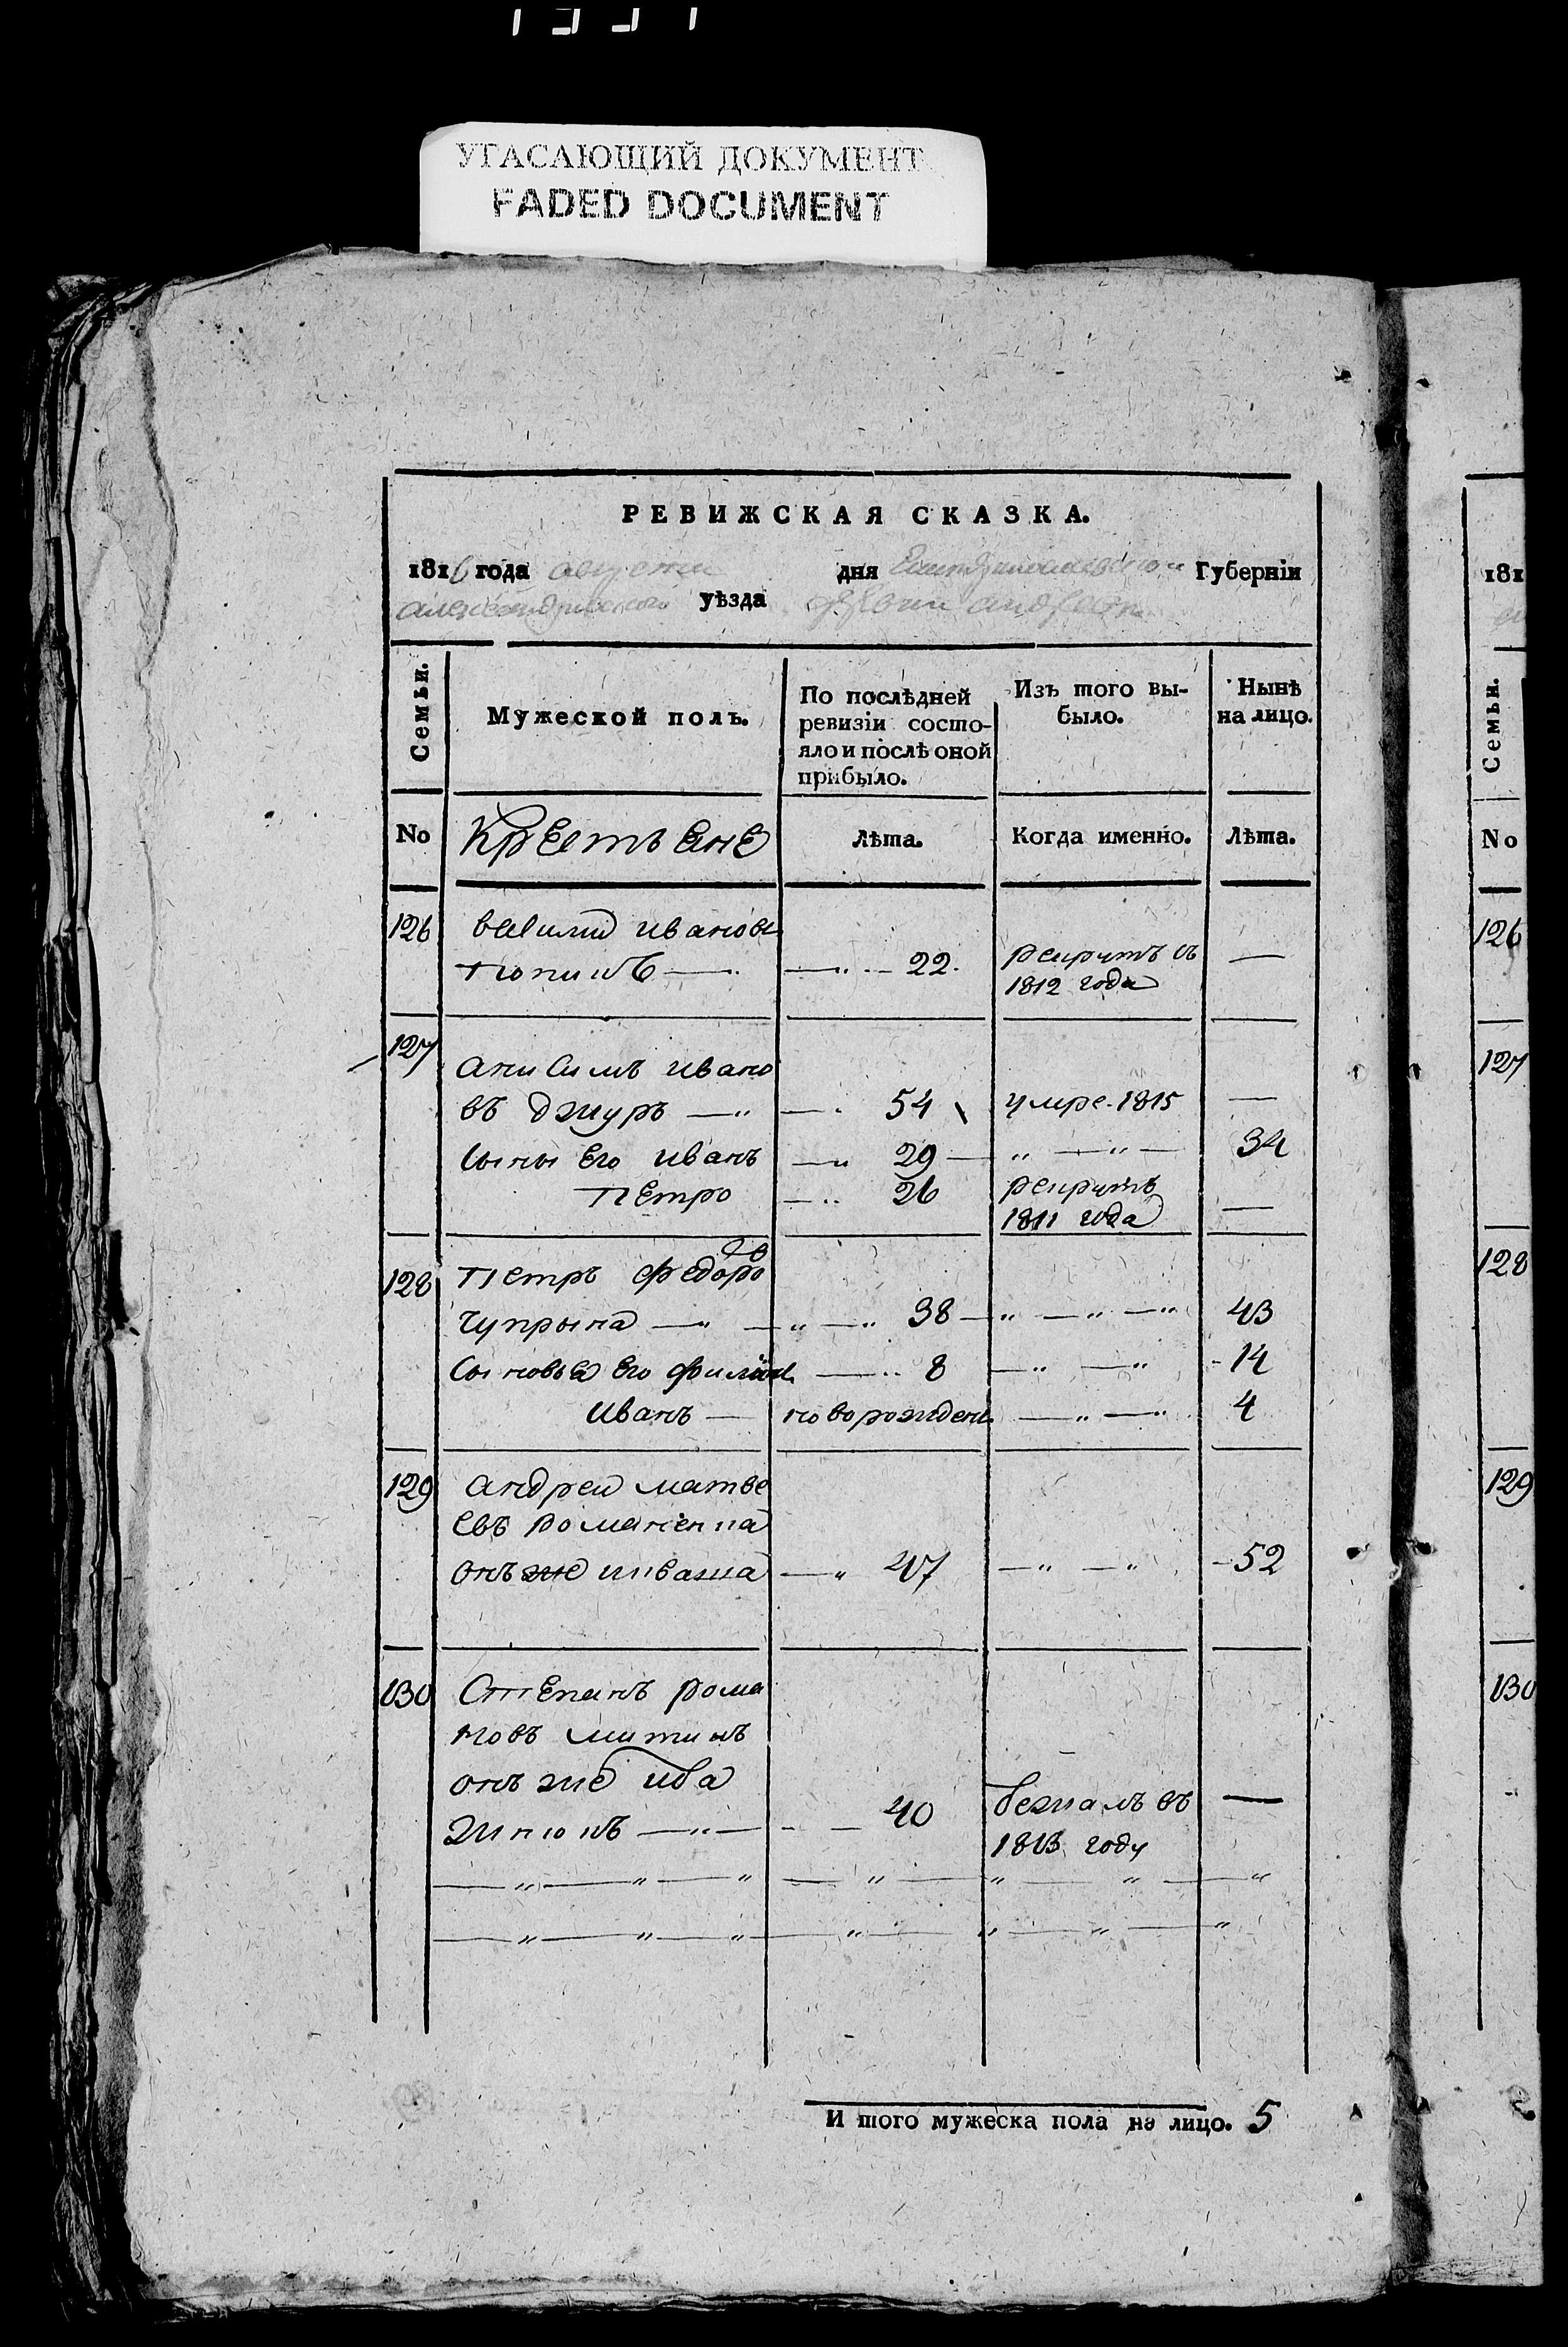 УГАСАЮЩИЙ ДОКУМЕНТ
FADED DOCUMENT
РЕВИЖСКАЯ СКАЗКА.
1816 года августа дня Екатеринославской Губернiи
александрийского уѣзда
Семьи.
Мужеской полъ.
По послѣдней ревизiи состо-
яло и послѣ оной
прибыло.
Изъ того вы-
было.
Нынѣ
на лицо.
No Крестьяне Лѣта. Когда именно. Лѣта.
126 василий иванов
22. рекрутъ въ —
1812 года
127 анисимъ ивано
въ джуръ — 54 умре. 1815 —
сыны его иванъ — 29 — 34
Петро — 26 рекрутъ
1811 года —
128 Петръ федоро
въ
Чупрына — 38 — 43
Сыновья его филип — 8 — 14
иванъ — новорожден. — 4
129 андреи матве
евъ романенка
онъ же иваша — 47 — 52
130 Степанъ рома
новъ митинъ
онъ же ива
40 бежалъ въ —
1813 году
И того мужеска пола на лицо. 5
181
Семьи.
No
126
127
128
129
130